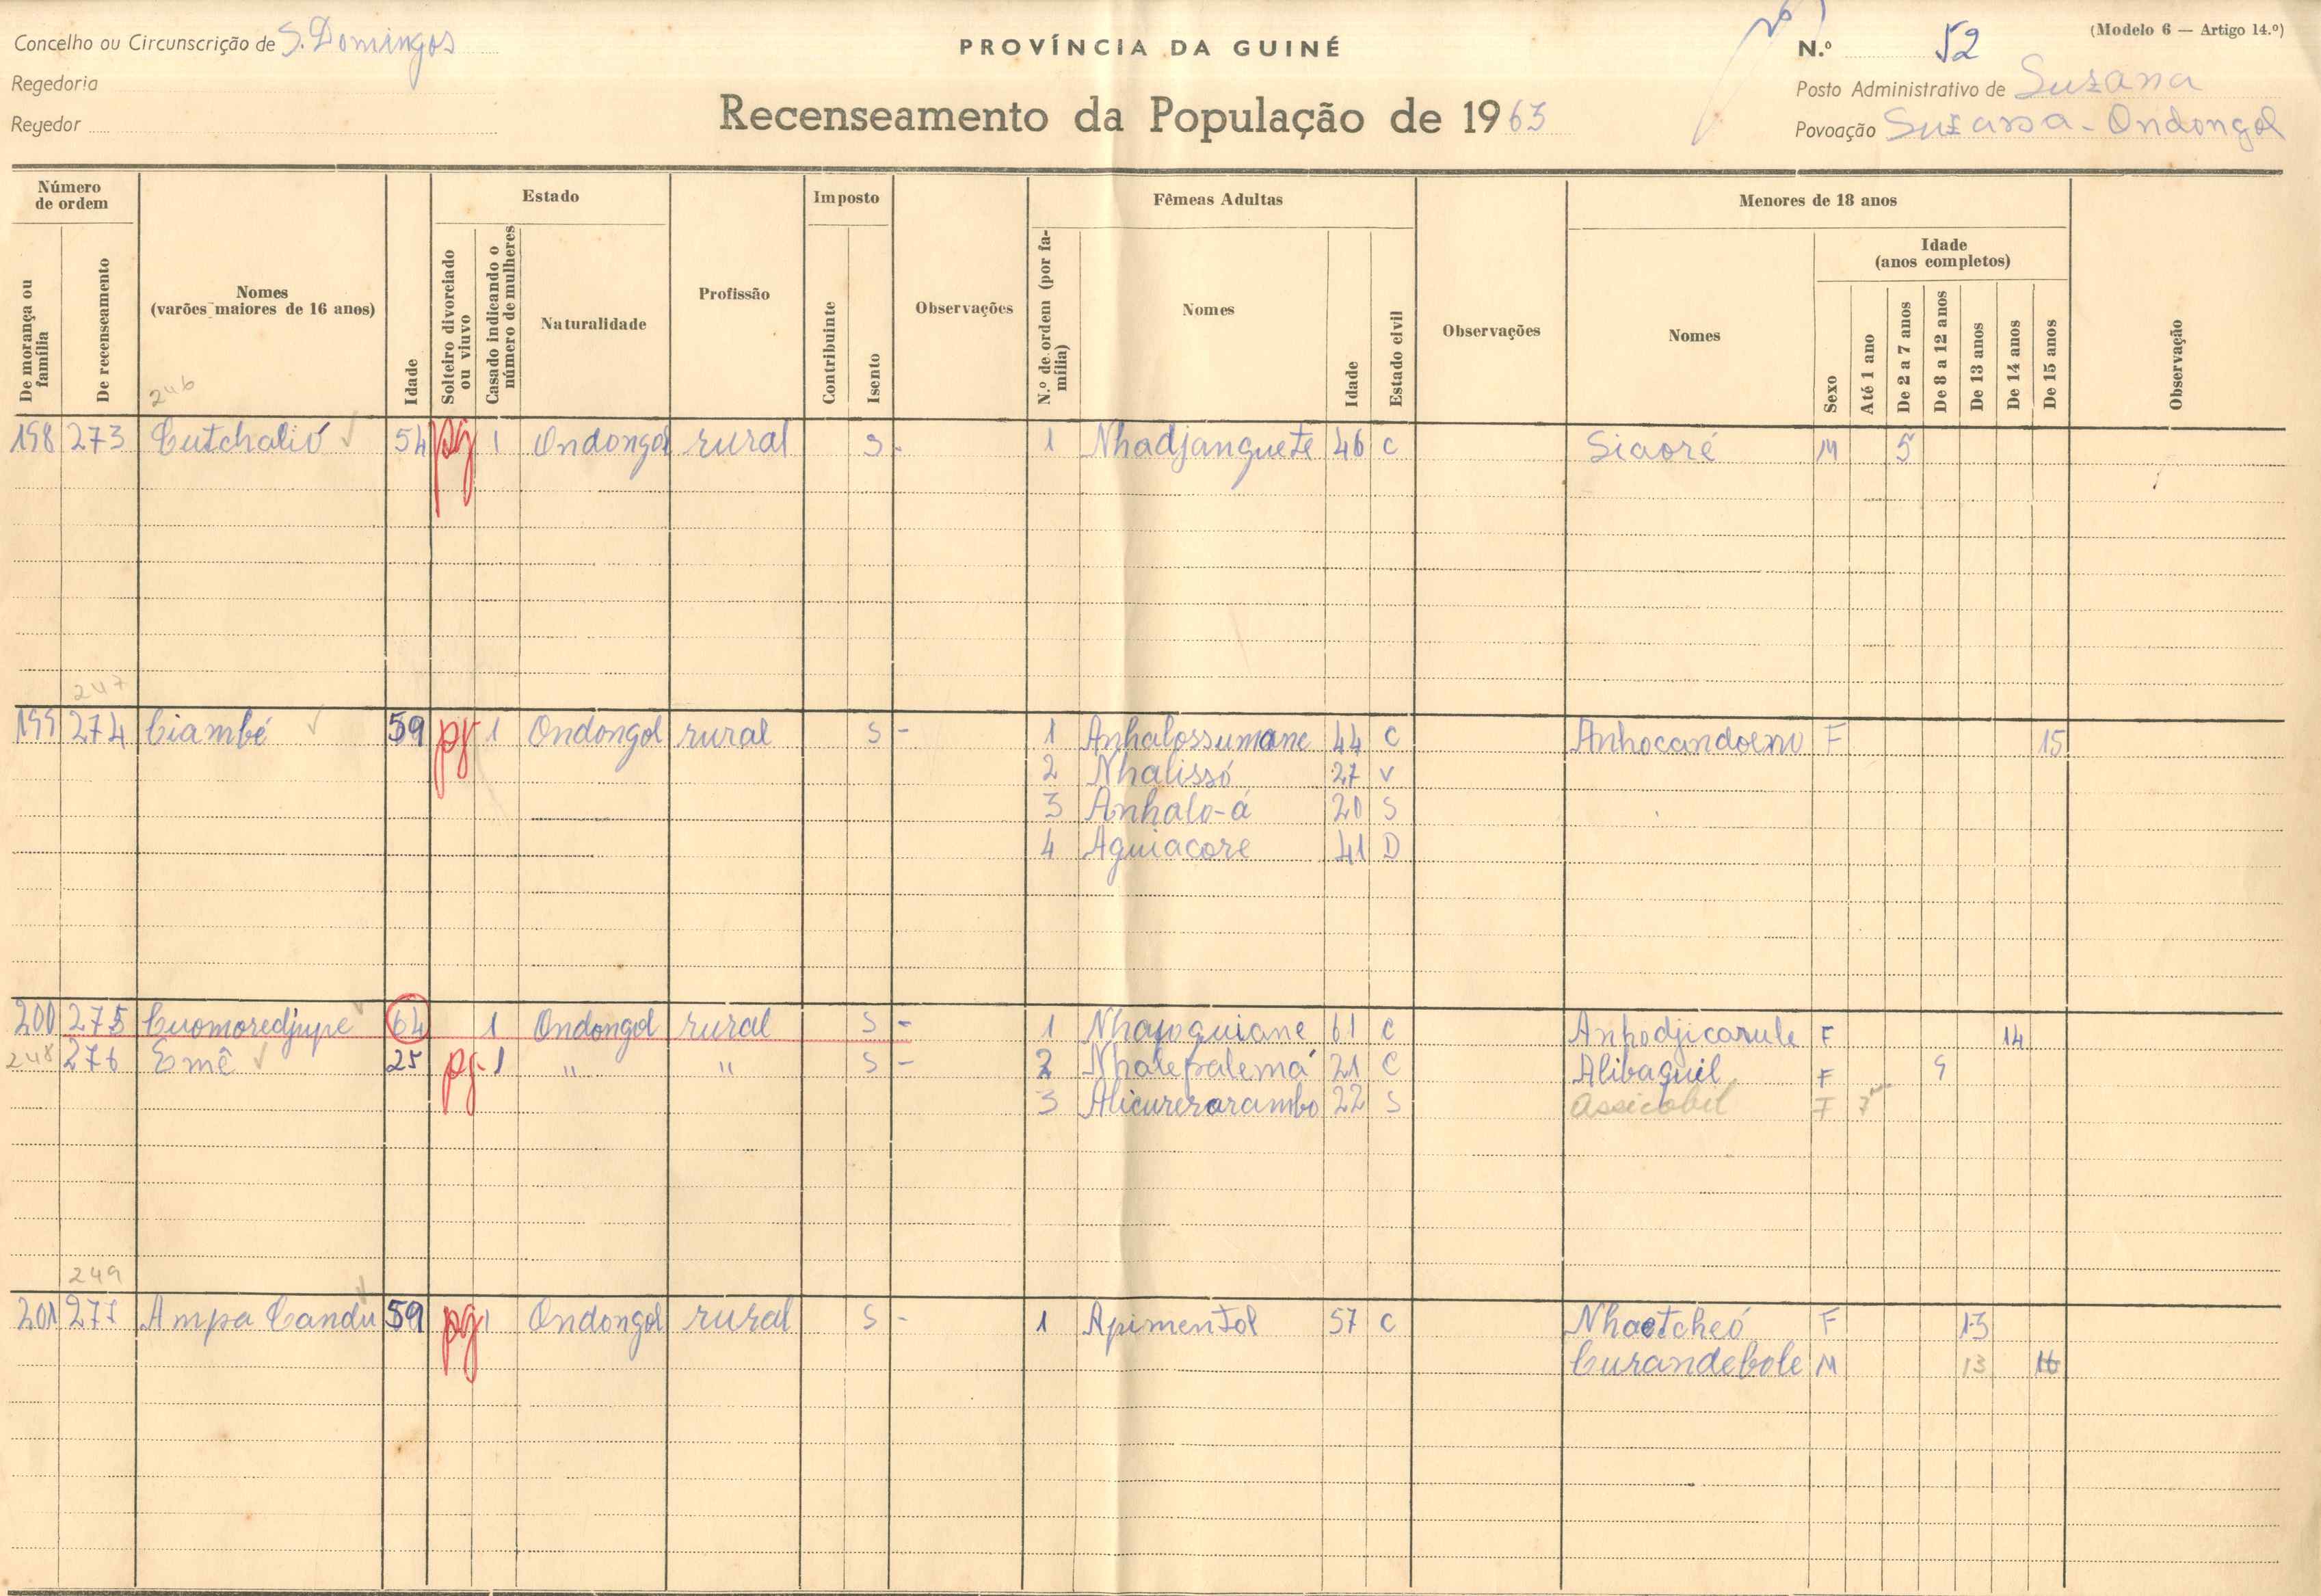 Concelho ou Circunscrição de S. Domingos
PROVÍNCIA DA GUINÉ
N.º 52
(Modelo 6 — Artigo 14.º)
Regedoria
Posto Administrativo de Suzana
Regedor
Recenseamento da População de 1963
Povoação Suzana - Ondongol
Número de ordem
Estado
Imposto
Fêmeas Adultas
Menores de 18 anos
De morança ou família
De recenseamento
Nomes (varões maiores de 16 anos)
Idade
Solteiro divorciado ou viuvo
Casado indicando o número de mulheres
Naturalidade
Profissão
Contribuinte
Isento
Observações
N.º de ordem (por família)
Nomes
Idade
Estado civil
Observações
Nomes
Sexo
Idade (anos completos)
Até 1 ano
De 2 a 7 anos
De 8 a 12 anos
De 13 anos
De 14 anos
De 15 anos
Observação
246
198 273 Cutchaliú 54 pg 1 Ondongol rural S - 1 Nhadjanguete 46 C Siaoré M 5
247
199 274 Ciambé 59 pg 1 Ondongol rural S - 1 Anhalossumane 44 C Anhocandoeno F 15
2 Nhalissó 27 V
3 Anhalo-á 20 S
4 Aguiacore 41 D
200 275 Cuomoredjupe 64 1 Ondongol rural S - 1 61 C Anhodjicarule F 14
248 276 Emê 25 pg 1 " " S - 2 Nhalepalemá 21 C Alibaguil F 9
3 Alicurerarambo 22 S Assicobel F 7
249
201 277 Ampa Candu 59 pg 1 Ondongol rural S - 1 Apimentol 57 C Nhaetcheó F 13
Curandebole M 13 16